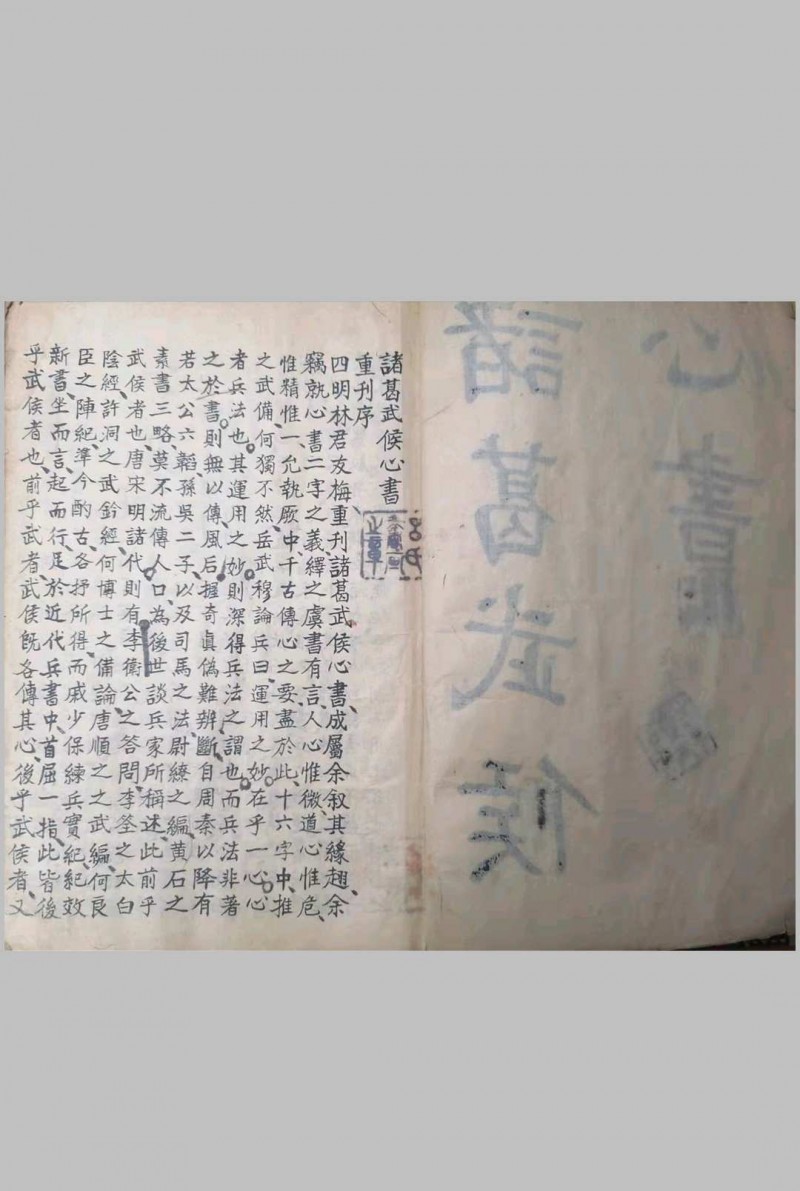 心書
諸葛武侯
諸葛武侯心書
重刊序
四明林君友梅重刊諸葛武侯心書、成屬余叙其緣趙、余
竊就心書二字之義繹之虞書有言、人心惟微、道心惟危、
惟精惟一、允執厥中、千古傳心之要盡於此、十六字中、推
之武備、何獨不然、岳武穆論兵曰、運用之妙、在乎一心、心
者兵法也、其運用之妙、則深得兵法之謂也、而兵法非著
之於書、則無以傳、風后握奇真偽難辨、斷自周秦以降、有
若太公六韜、孫吳二子、以及司馬之法、尉繚之編、黃石之
素書三略、莫不流傳人口、為後世談兵家所稱述、此前乎
武侯者也、唐宋明諸代、則有李衛公之答問、李筌之太白
陰經、許洞之武鈐經、何博士之備論、唐順之之武編、何良
臣之陣紀、準今酌古、各抒所得、而戚少保練兵實紀、紀效
新書、坐而言、起而行、足於近代兵書中、首屈一指、此皆後
乎武侯者也、前乎武者武侯既各傳其心、後乎武侯者、又